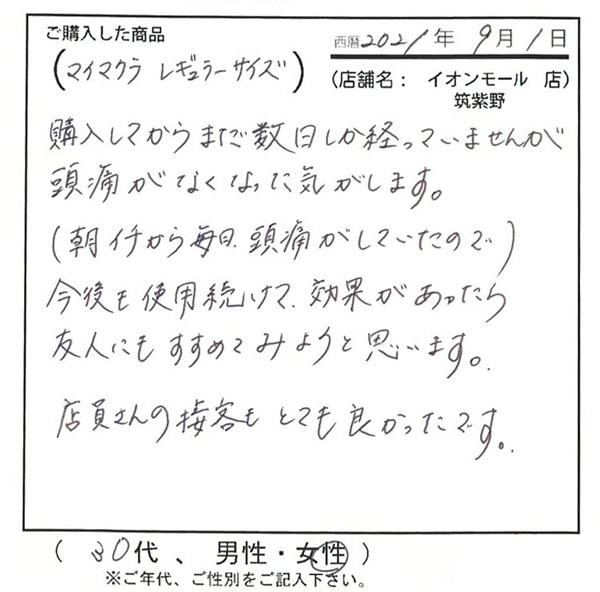 ご購入した商品
(マイマクラ レギュラーサイズ)
西暦2021年 9月 1日
(店舗名： イオンモール 店)
筑紫野
購入してからまだ数日しか経っていませんが
頭痛がなくなった気がします。
(朝イチから毎日、頭痛がしていたので)
今後も使用続けて、効果があったら
友人にもすすめてみようと思います。
店員さんの接客も とても良かったです。
( 30代 、 男性・女性 )
※ご年代、ご性別をご記入下さい。